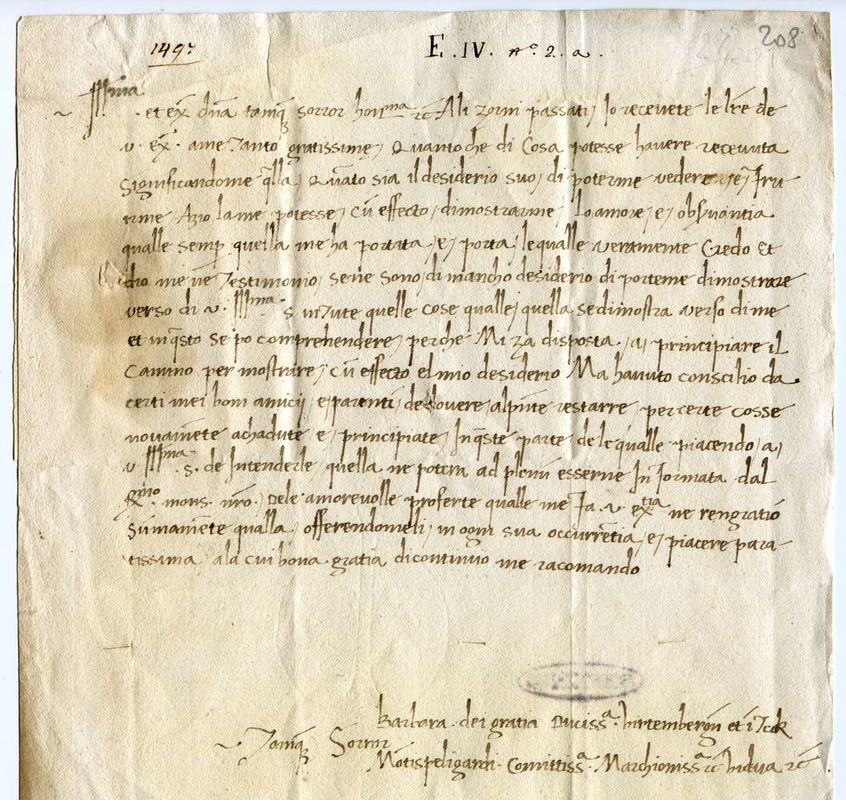 1497
E . IV . nº. 2. a .
208
Jllma
et exª dnã tamq̃ soror honma rc Ali zorni passati, Jo recevete le lre de
v . exª . ame tanto gratissime, Quanto che di Cosa potesse havere recevuta
Significandome q̃lla, Quãto sia il desiderio suo, di poterme vedere e, fru
irme, Azio lame potesse, cũ effecto, dimostrarme, Lo amore, e, obsṽantia
qualle semp̱ quella me ha portata, e, porta, lequalle veramente Credo et
dio me ne testimonio, se ne sono, di mancho desiderio di porteme dimostrare
verso di v . Jllma . s in tute quelle cose qualle, quella se dimostra verso di me
et in q̃sto se po comprehendere, perche Mi za disposta, a, principiare il
Camino per mostrare, cũ effecto el mio desiderio Ma havuto conscilio da
certi mei boni amicij, e, parenti, de dovere, al p̃nte restarre, per certe cosse
novamẽte achadute e, principiate, In q̃ste parte, dele qualle piacendo, a,
v Jllma . s . de Intenderle quella ne potera ad plenũ esserne Informata dal
mons. nr̃o. , Dele amorevolle proferte qualle me fa . v extia ne rengratio
Sumamẽte qualla, offerendomeli, in ogni sua occurrẽtia, e, piacere para-
tissima, ala cui bona gratia di continuo me racomando
Barbara . dei gratia Ducissª . birtembergñ et i Teck
Tamq̃ Soror
Mõtispeligardi . Comittissª . Marchionissª rc bidua rc